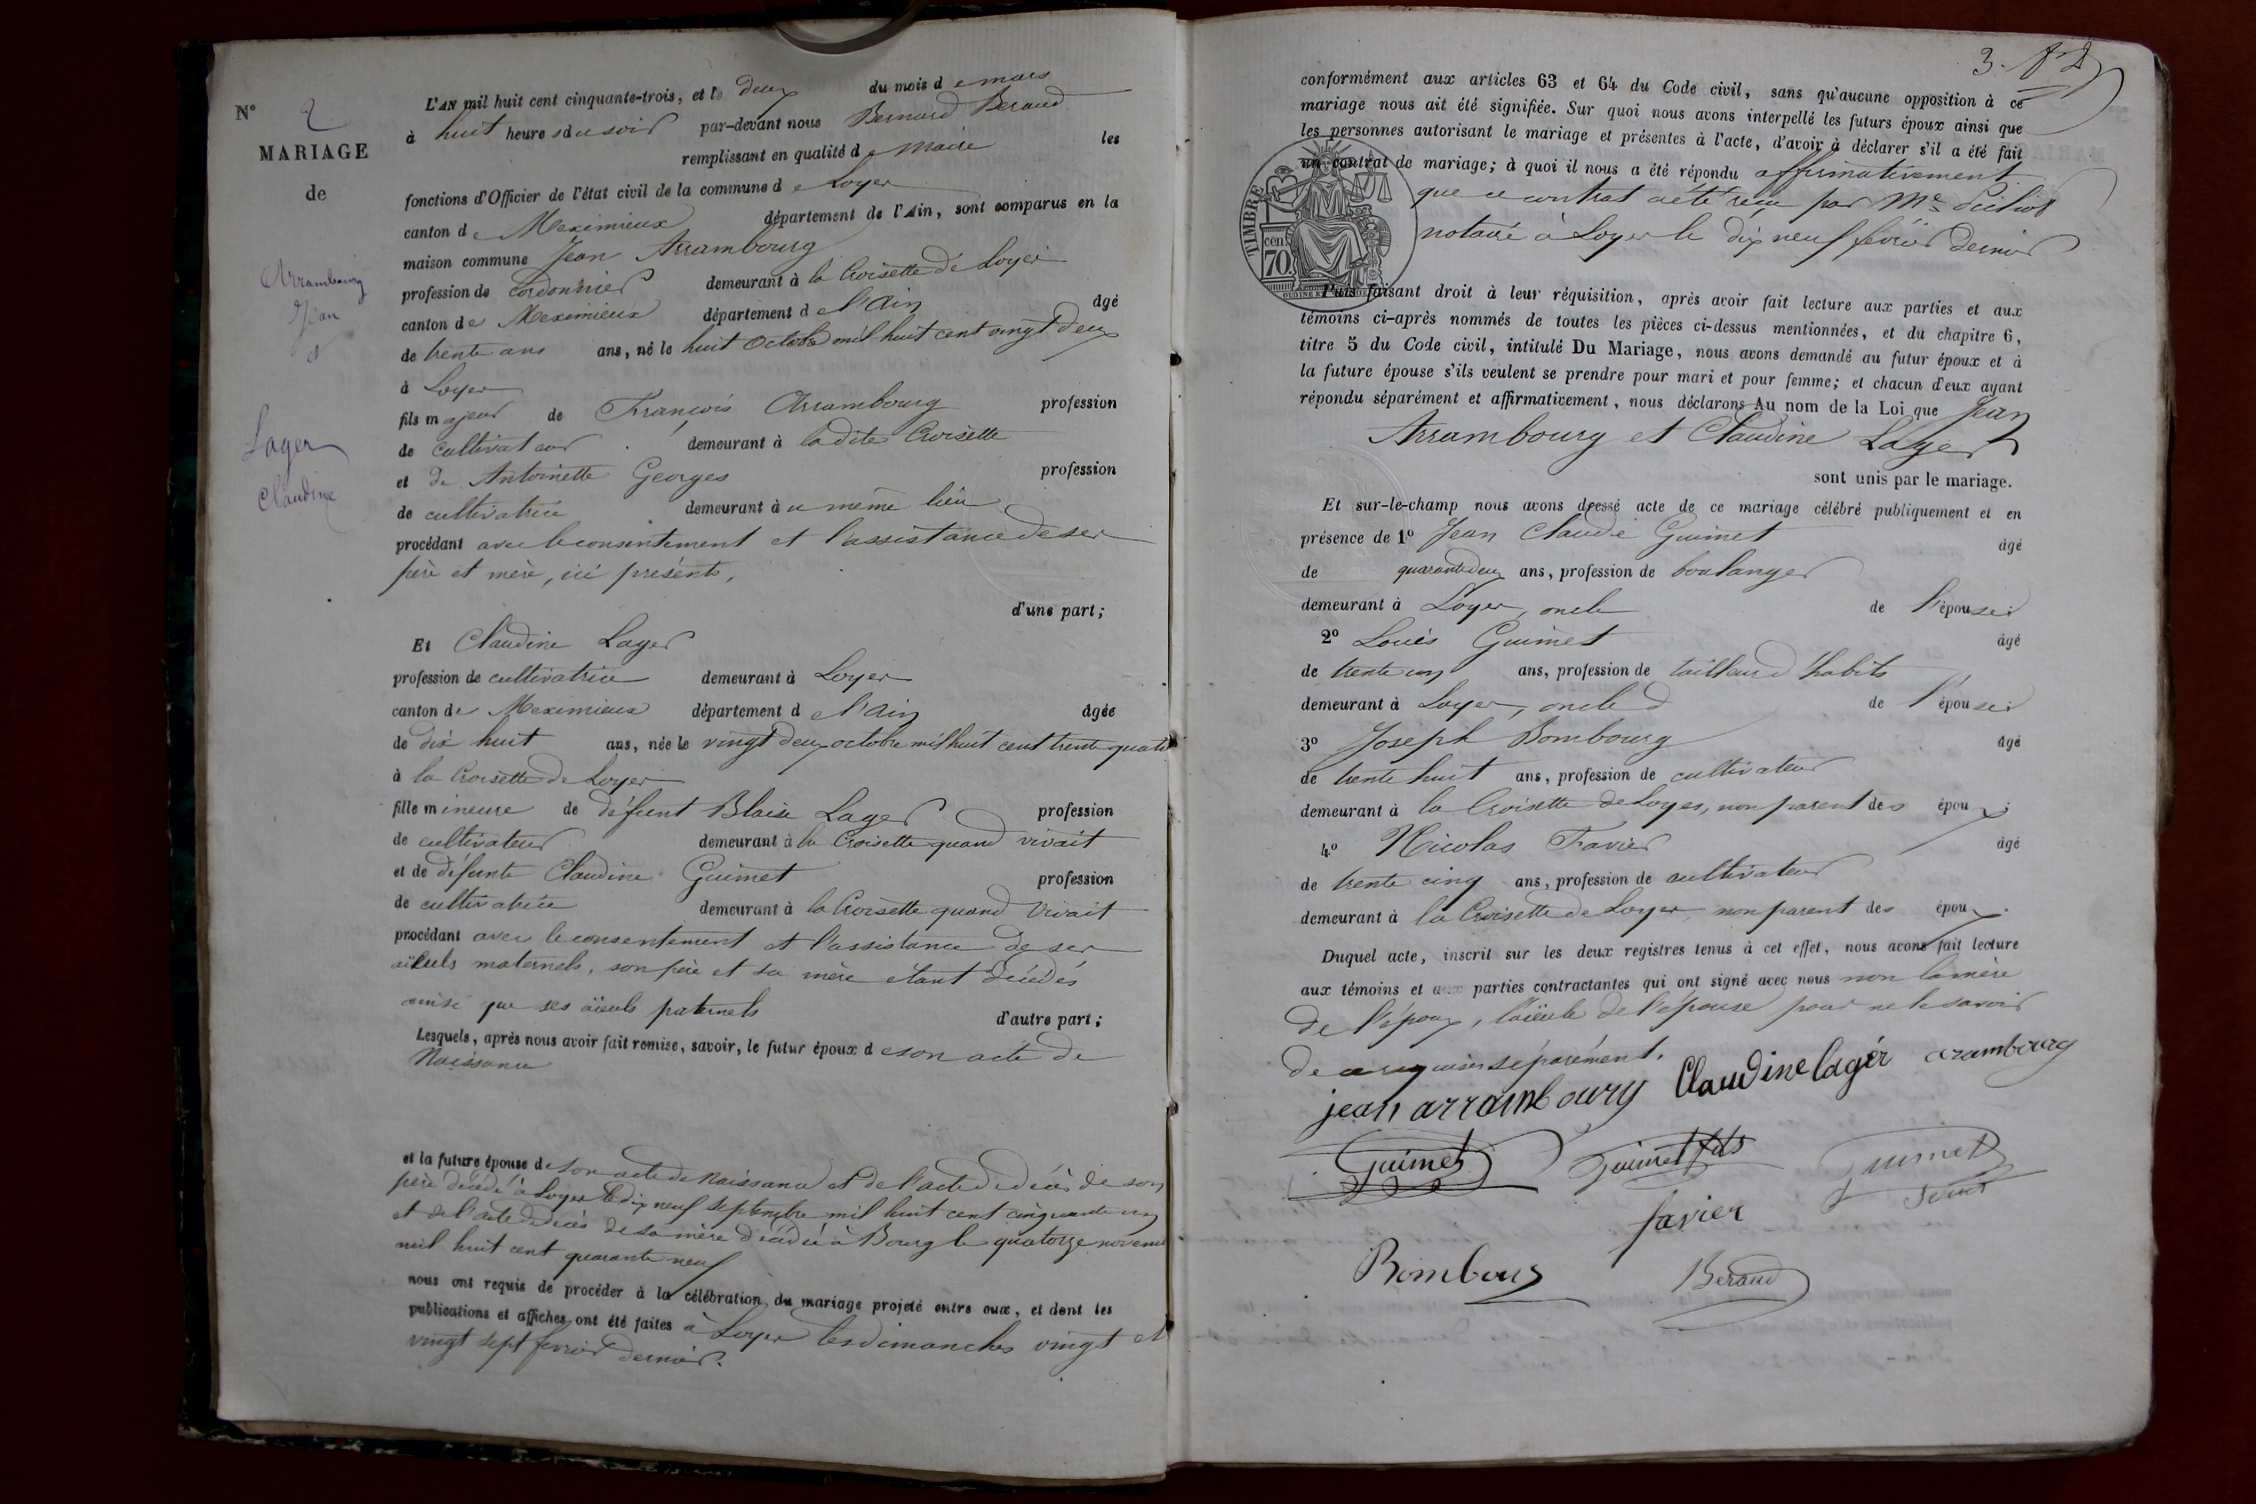 N° 2
MARIAGE
de
Arrambourg
Jean
et
Lager
Claudine
L'AN mil huit cent cinquante-trois, et le deux du mois de mars
à huit heures du soir par-devant nous Bernard Beraud
remplissant en qualité de Maire les
fonctions d'Officier de l'état civil de la commune de Loyes
canton de Meximieux département de l'Ain, sont comparus en la
maison commune Jean Arrambourg
profession de cordonnier demeurant à la Croisette de Loyes
canton de Meximieux département de l'Ain âgé
de trente ans ans, né le huit Octobre mil huit cent vingt deux
à Loyes
fils majeur de François Arrambourg profession
de cultivateur demeurant à ladite Croisette
et de Antoinette Georges profession
de cultivatrice demeurant au même lieu
procédant avec le consentement et l'assistance de ses
père et mère, ici présents,
d'une part;
Et Claudine Lager
profession de cultivatrice demeurant à Loyes
canton de Meximieux département de l'Ain âgée
de dix huit ans, née le vingt deux octobre mil huit cent trente quatre
à la Croisette de Loyes
fille mineure de défunt Blaise Lager profession
de cultivateur demeurant à la Croisette quand vivait
et de défunte Claudine Guimet profession
de cultivatrice demeurant à la Croisette quand vivait
procédant avec le consentement et l'assistance de ses
aïeuls maternels, son père et sa mère étant décédés
ainsi que ses aïeuls paternels
d'autre part;
Lesquels, après nous avoir fait remise, savoir, le futur époux de son acte de
Naissance
et la future épouse de son acte de Naissance et de l'acte de décès de son
père décédé à Loyes le dix neuf septembre mil huit cent cinquante un
et de l'acte de décès de sa mère décédée à Bourg le quatorze novembre
mil huit cent quarante neuf
nous ont requis de procéder à la célébration du mariage projeté entre eux, et dont les
publications et affiches ont été faites à Loyes les dimanches vingt et
vingt sept février dernier.
3.
conformément aux articles 63 et 64 du Code civil, sans qu'aucune opposition à ce
mariage nous ait été signifiée. Sur quoi nous avons interpellé les futurs époux ainsi que
les personnes autorisant le mariage et présentes à l'acte, d'avoir à déclarer s'il a été fait
un contrat de mariage; à quoi il nous a été répondu affirmativement
que ce contrat a été reçu par Me
notaire à Loyes le dix neuf février dernier
TIMBRE
cen
70.
Puis faisant droit à leur réquisition, après avoir fait lecture aux parties et aux
témoins ci-après nommés de toutes les pièces ci-dessus mentionnées, et du chapitre 6,
titre 5 du Code civil, intitulé Du Mariage, nous avons demandé au futur époux et à
la future épouse s'ils veulent se prendre pour mari et pour femme; et chacun d'eux ayant
répondu séparément et affirmativement, nous déclarons Au nom de la Loi que Jean
Arrambourg et Claudine Lager
sont unis par le mariage.
Et sur-le-champ nous avons dressé acte de ce mariage célébré publiquement et en
présence de 1° Jean Claude Guimet âgé
de quarante deux ans, profession de boulanger
demeurant à Loyes, oncle de l'épouse;
2° Louis Guimet âgé
de trente un ans, profession de tailleur d'habits
demeurant à Loyes, oncle de l'épouse;
3° Joseph Bombourg âgé
de trente huit ans, profession de cultivateur
demeurant à la Croisette de Loyes, non parent des époux;
4° Nicolas Favier âgé
de trente cinq ans, profession de cultivateur
demeurant à la Croisette de Loyes, non parent des époux.
Duquel acte, inscrit sur les deux registres tenus à cet effet, nous avons fait lecture
aux témoins et aux parties contractantes qui ont signé avec nous non la mère
de l'époux, l'aïeule de l'épouse pour ne le savoir
de ce requises séparément.
jean arrambourg Claudine lager arambourg
Guimet Guimet fils Guimet
favier
Bombourg Beraud